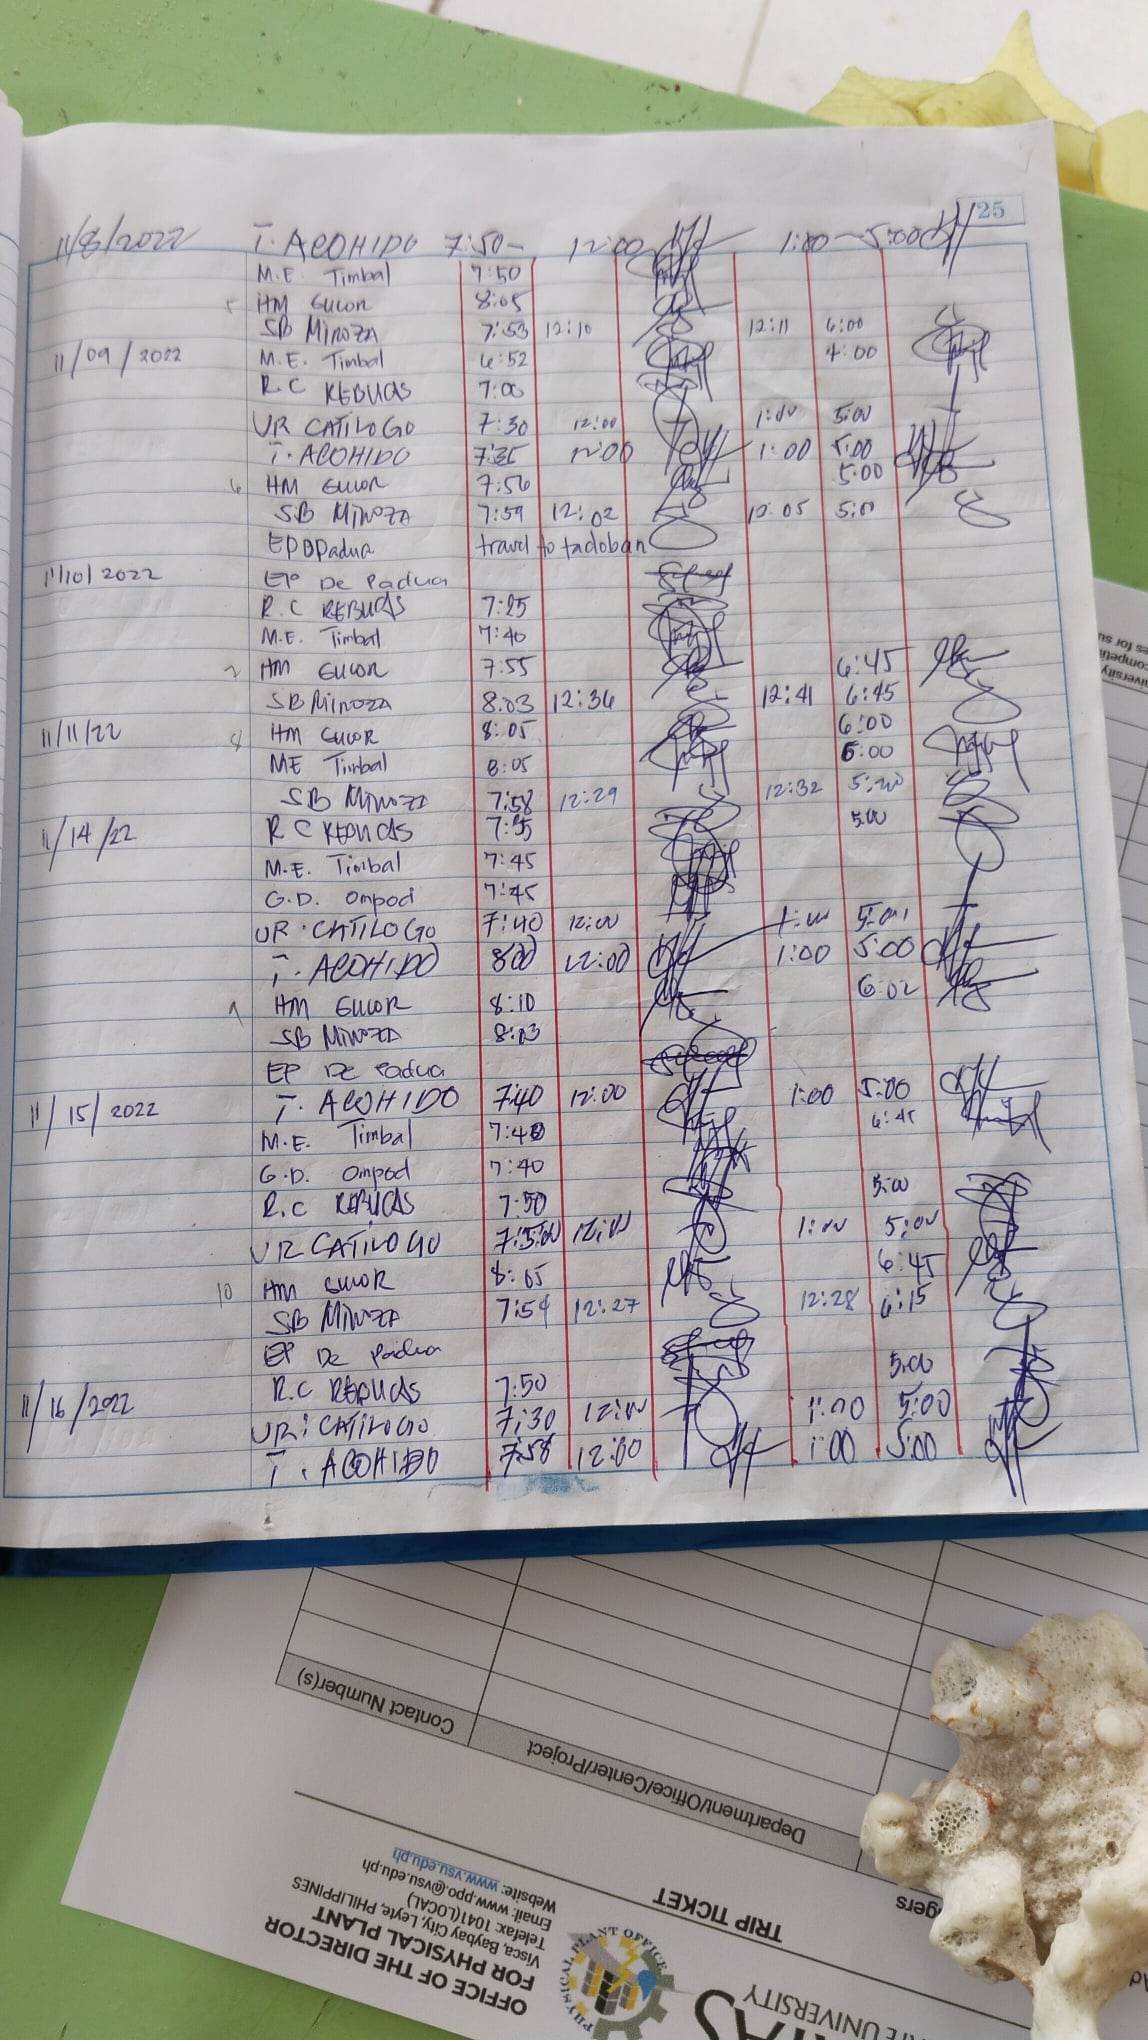 25
11/8/2022 T. ACOHIDO 7:50- 12:00 1:00-5:00
M.E. Timbal 7:50
5 HM Gucor 8:05
SB MINOZA 7:53 12:10 12:11 6:00
11/09/2022 M.E. Timbal 6:52 4:00
R.C REBUCAS 7:00
UR CATILOGO 7:30 12:00 1:00 5:00
T. ACOHIDO 7:35 12:00 1:00 5:00
6 HM Gucor 7:56 5:00
SB MINOZA 7:59 12:02 12:05 5:00
EPDPadua travel to tacloban
11/10/2022 EP De Padua
R.C REBUCAS 7:25
M.E. Timbal 7:40
2 HM GUCOR 7:55 6:45
SB MINOZA 8:03 12:36 12:41 6:45
11/11/22 4 HM GUCOR 8:05 6:00
ME Timbal 8:05 5:00
SB MINOZA 7:58 12:29 12:32 5:20
11/14/22 R C REBUCAS 7:35 5:00
M.E. Timbal 7:45
G.D. Ompod 7:45
UR. CATILOGO 7:40 12:00 1:00 5:00
T. ACOHIDO 8:00 12:00 1:00 5:00
HM GUCOR 8:10 6:02
SB MINOZA 8:03
EP De Padua
11/15/2022 T. ACOHIDO 7:40 12:00 1:00 5:00
M.E. Timbal 7:40 6:45
G.D. Ompod 7:40
R.C REBUCAS 7:50 5:00
UR CATILOGO 12:00 1:00 5:00
10 HM GUCOR 8:05 6:45
SB MINOZA 7:54 12:27 12:28 6:15
EP De Padua
11/16/2022 R.C REBUCAS 7:50 5:00
UR. CATILOGO 7:30 12:00 1:00 5:00
T. ACOHIDO 7:58 12:00 1:00 5:00
OFFICE OF THE DIRECTOR
FOR PHYSICAL PLANT
Visca, Baybay City, Leyte, PHILIPPINES
Telefax: 1041(LOCAL)
Email: www.ppo.@vsu.edu.ph
Website: www.vsu.edu.ph
PHYSICAL PLANT OFFICE
TRIP TICKET
Department/Office/Center/Project
Contact Number(s)